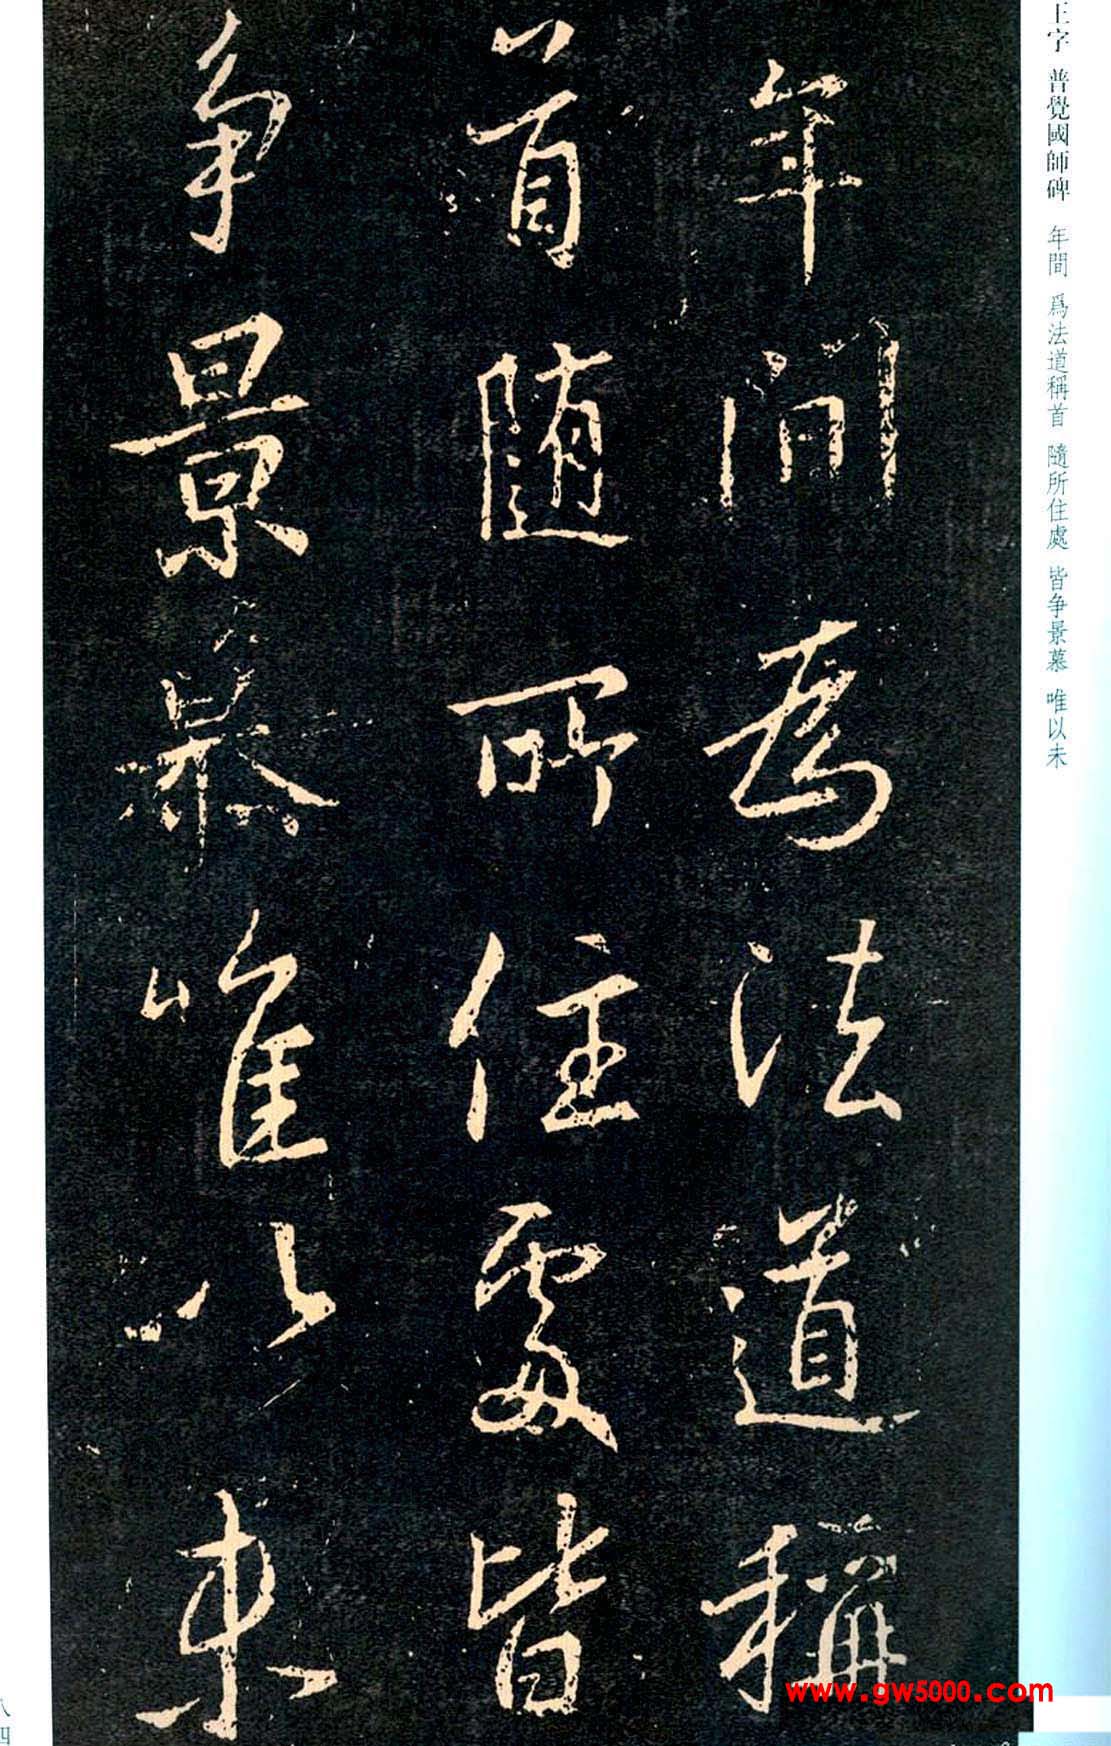 王字 普覺國師碑 年間 爲法道稱首 隨所住處 皆争景慕 唯以未
年間為法道稱
首随所住處皆
争景慕唯以未
八四
www.gw5000.com